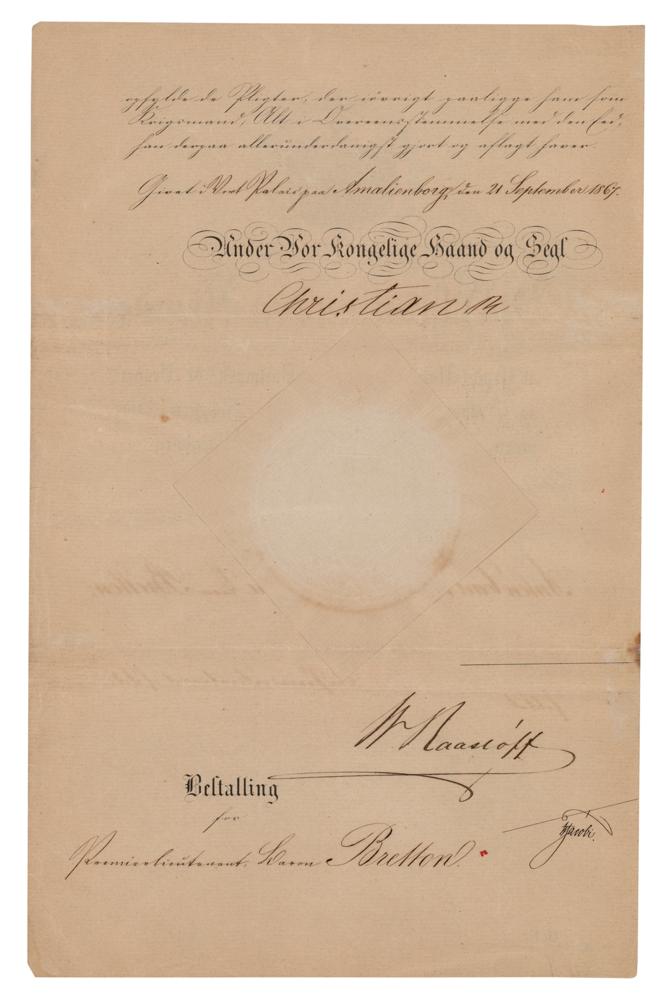 opfylde de Pligter, der iøvrigt paaligge ham som
Krigsmand, Alt i Overeensstemmelse med den Eed,
han derpaa allerunderdanigst gjort og aflagt haver.
Givet i Vort Palais paa Amalienborg, den 21 September 1867.
Under Vor Kongelige Haand og Segl
Christian R
W Raaslöff
Bestalling
for
Premierlieutenant, Baron Bretton.